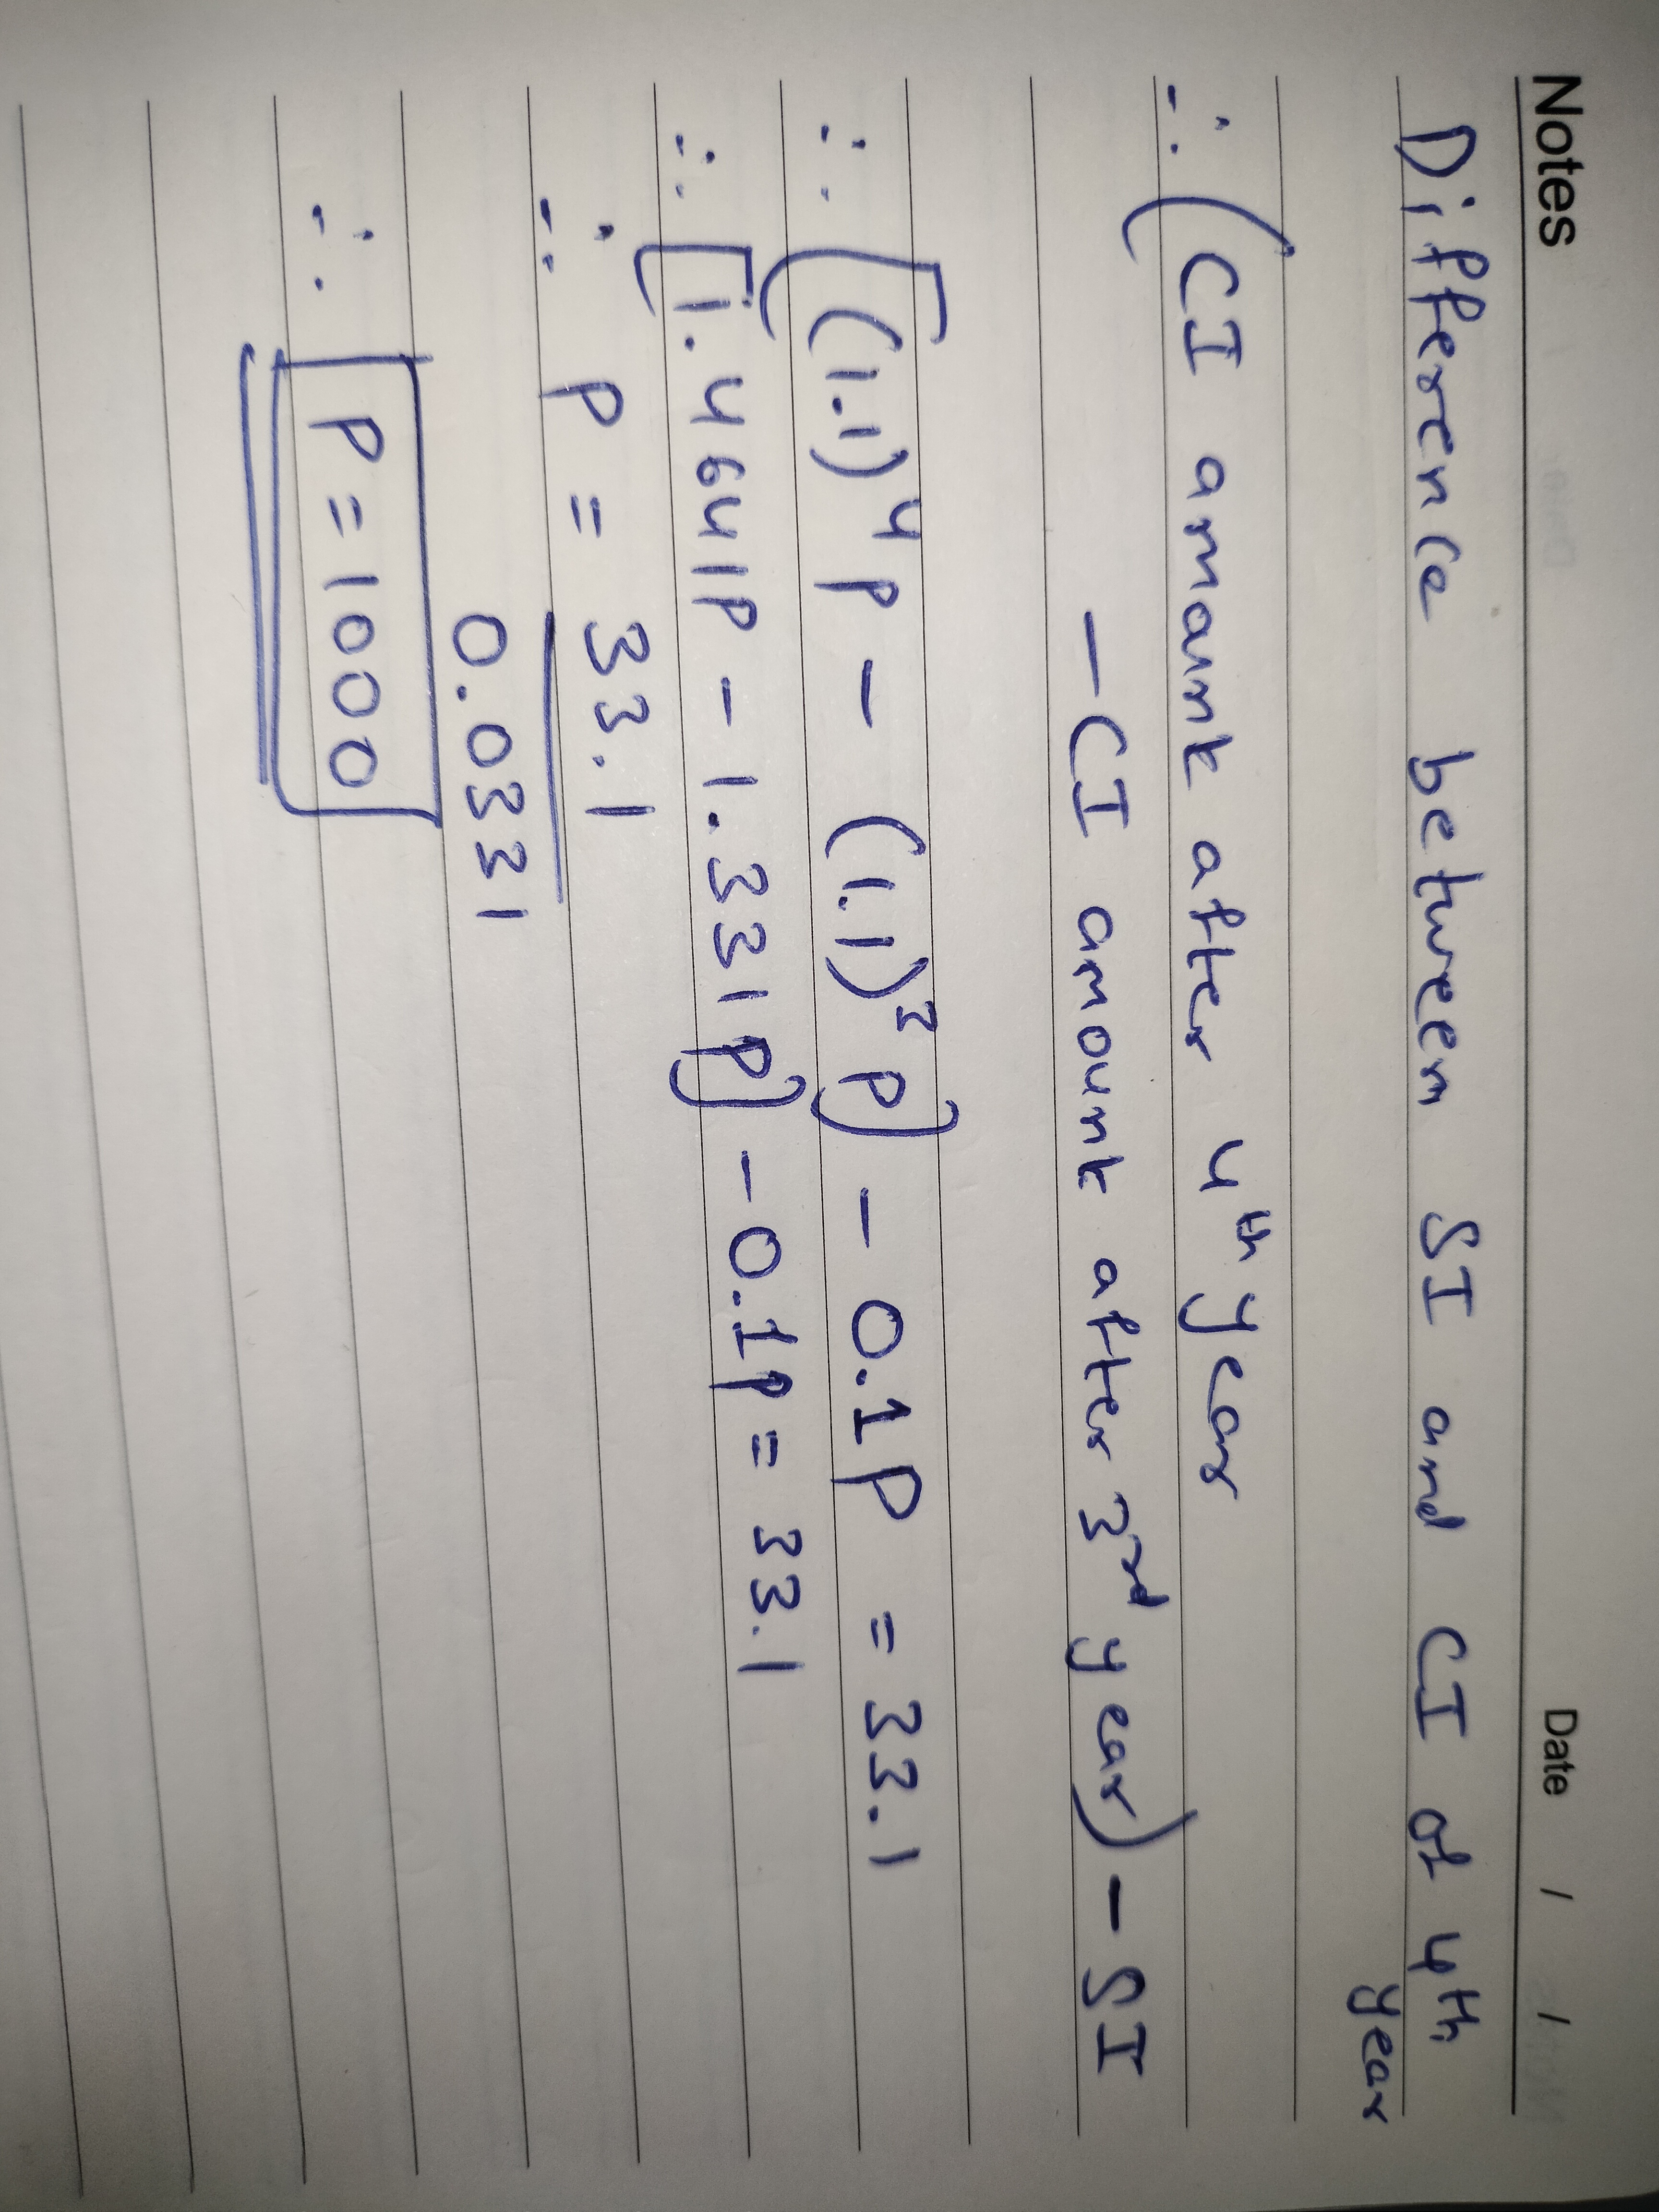 Notes Date / /
Difference between SI and CI of 4th
year
∴ (CI amount after 4th year
- CI amount after 3rd year) - SI
∴ [(1.1)^4 P - (1.1)^3 P] - 0.1P = 33.1
∴ [1.4641P - 1.331P] - 0.1P = 33.1
∴ P = 33.1
0.0331
∴ P = 1000